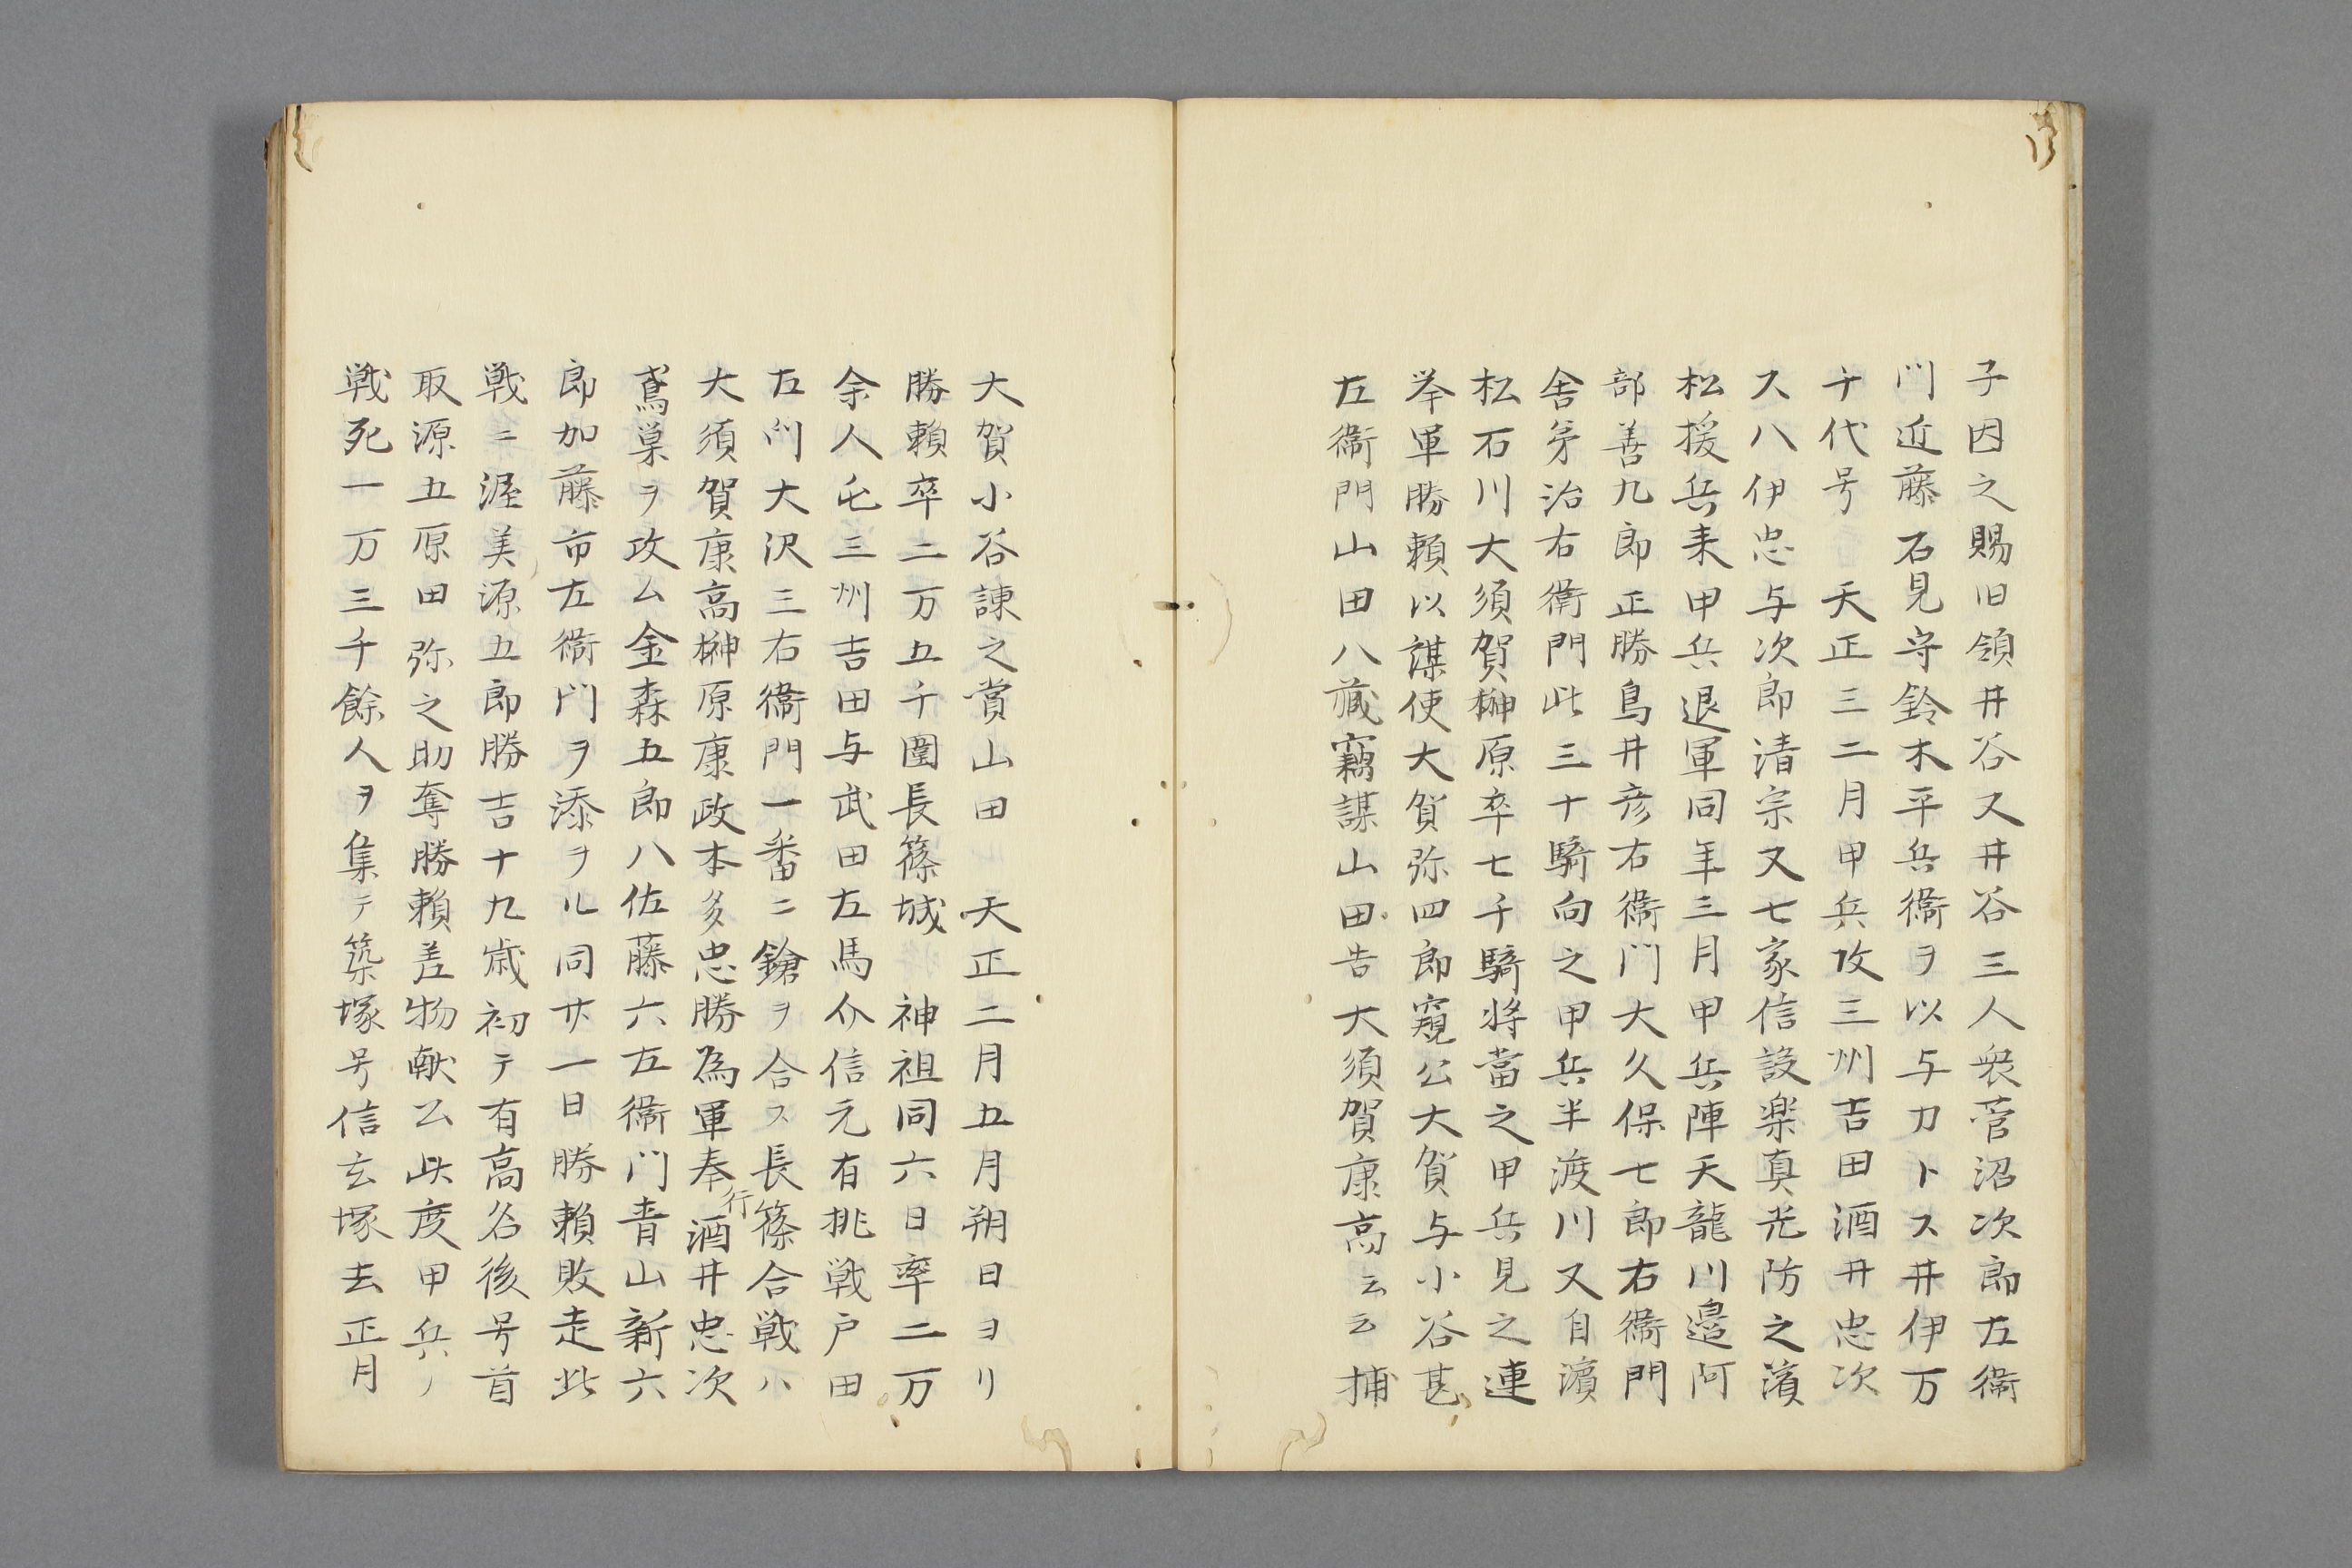 子因之賜旧領井谷又井谷三人衆菅沼次郎左衛
門近藤石見守鈴木平兵衛ヲ以与力トス井伊万
千代号 天正三二月甲兵攻三州吉田酒井忠次
ス八伊忠与次郎清宗又七家信設楽真光防之濱
松援兵来甲兵退軍同年三月甲兵陣天龍川邉阿
部善九郎正勝鳥井彦右衛門大久保七郎右衛門
舎弟治右衛門此三十騎向之甲兵半渡川又自濱
松石川大須賀榊原卒七千騎将當之甲兵見之連
挙軍勝頼以謀使大賀弥四郎窺公大賀与小谷甚
左衛門山田八蔵竊謀山田告大須賀康高云云捕
大賀小谷諌之賞山田 天正二月五月朔日ヨリ
勝頼卒二万五千圍長篠城 神祖同六日率二万
余人屯三州吉田与武田左馬介信元有挑戦戸田
左門大沢三右衛門一番ニ鎗ヲ合ス長篠合戦ハ
大須賀康高榊原康政本多忠勝為軍奉行酒井忠次
鳶巣ヲ攻ム金森五郎八佐藤六左衛門青山新六
郎加藤市左衛門ヲ添ヲル同廿一日勝頼敗走此
戦ニ渥美源五郎勝吉十九歳初テ有高名後号首
取源五原田弥之助奪勝頼差物献公此度甲兵ノ
戦死一万三千餘人ヲ集テ築塚号信玄塚去正月